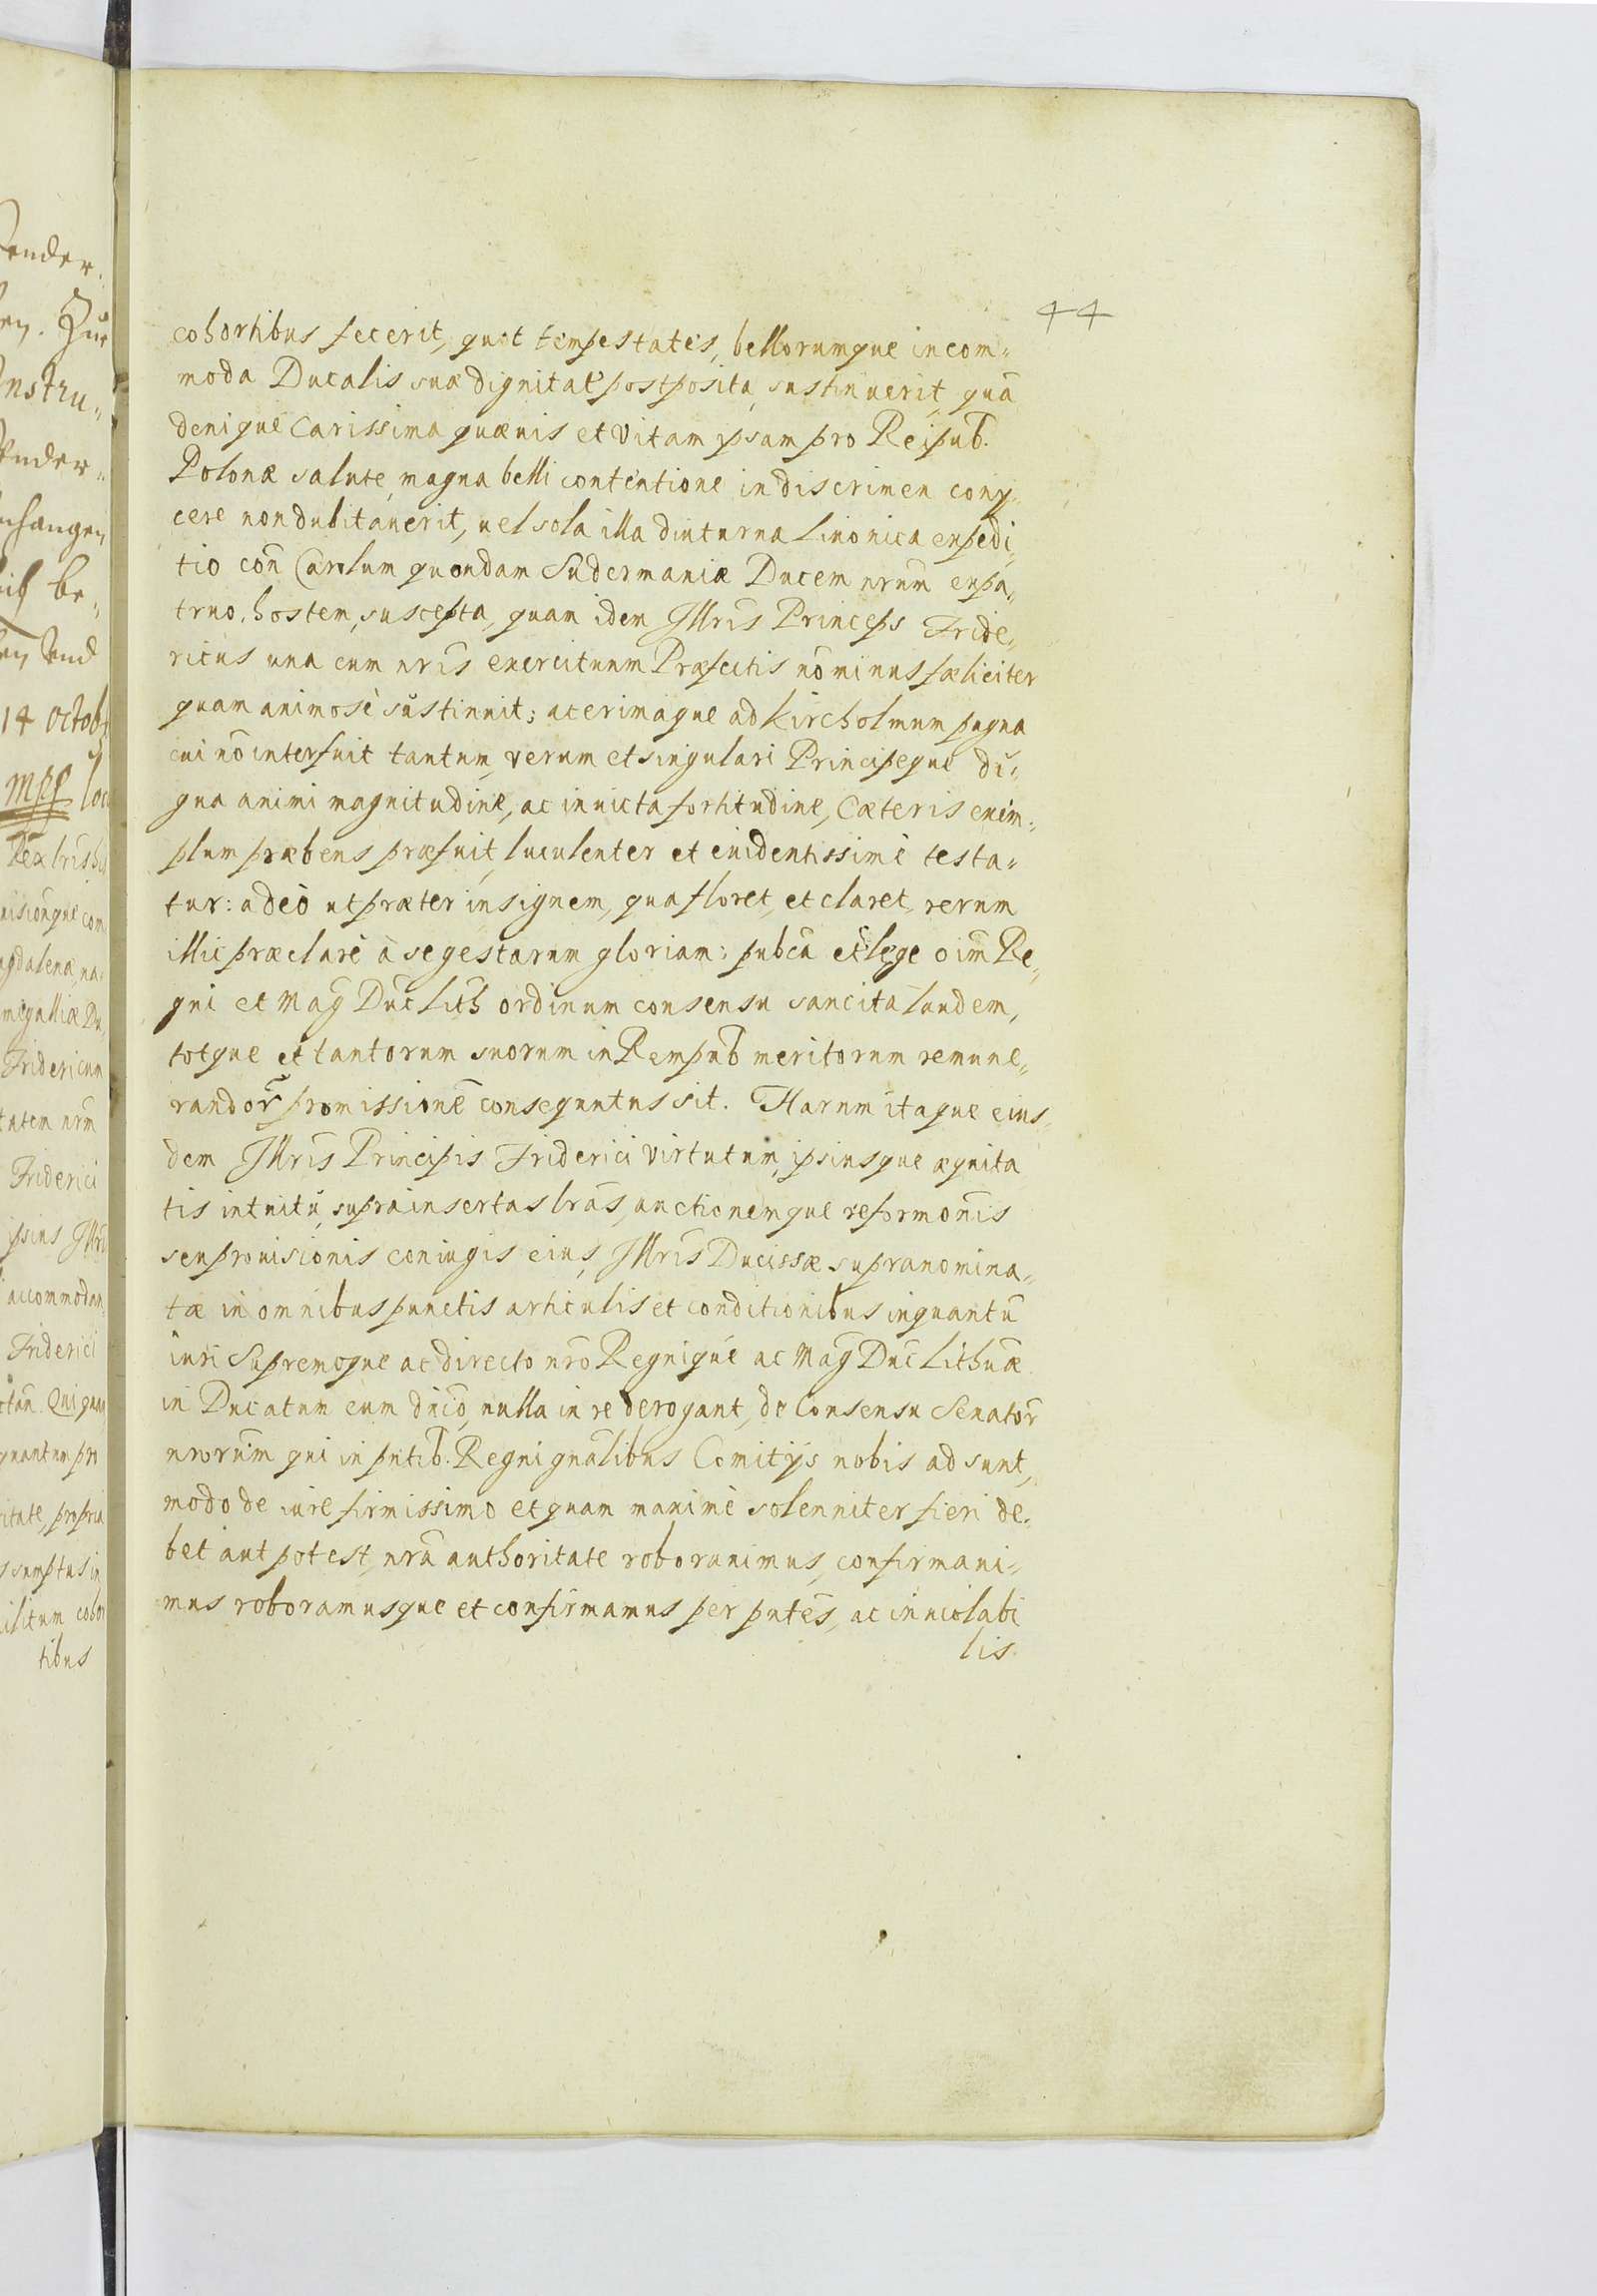 44
cohortibus fecerit, quot tempestates, bellorumque incom„
moda Ducalis suæ dignitate postposita, sustinuerit, quā
denique Carissima quævis et Vitam ipsam pro Reipub.
Polonæ salute, magna belli contentione in discrimen conÿ„
cere non dubitauerit, uel sola illa diuturna Liuonica expedi„
tio con̄ Carolum quondam Sudermaniæ Ducem nrum̄ expa„
truo, hostem, suscepta, quam idem Jllris̄ Princeps Fride„
ricus una cum nris̄ exercituum Præfectis nō minus fæliciter
quam animosè sustinuit; acerimaque ad Kircholmum pugna
cui nō interfuit tantum, verum et singulari Principeque di„
gna animi magnitudine, ac inuicta fortitudine, Cæteris exem„
plum præbens præfuit, luculenter et euidentissimè testa„
tur: adeò ut præter insignem, qua floret, et claret, rerum
illic præclarè à se gestarum gloriam; pubcā et lege oim̄ Re„
gni et Mag̃ Duc̄ Lith ordinum consensu sancita laudem,
totque et tantorum suorum in Rempub meritorum remune„
randor̄ promissionē consequutus sit. Harum itaque eius„
dem Jllris̄ Principis Friderici Virtutum, ipsiusque æquita
tis intuitu, suprainsertas lrās, auctionemque reformonis̄
seu prouisionis coniugis eius, Jllris̄ Ducissæ supranomina„
tæ in omnibus punctis articulis et conditionibus inquantū
iuri Supremoque ac directo nrō Regnique ac Mag̃ Duc̄ Lithuǣ
in Ducatum eum dn̄io, nulla in re derogant, de Consensu Senator̄
nrorum̄ qui in pn̄tib. Regni gnālibus Comitÿs nobis adsunt,
modo de iure firmissimo et quam maximè solenniter fieri de„
bet aut potest, nrā authoritate roborauimus, confirmaui„
mus roboramusque et confirmamus per pn̄tes, ac inuiolabi
lis